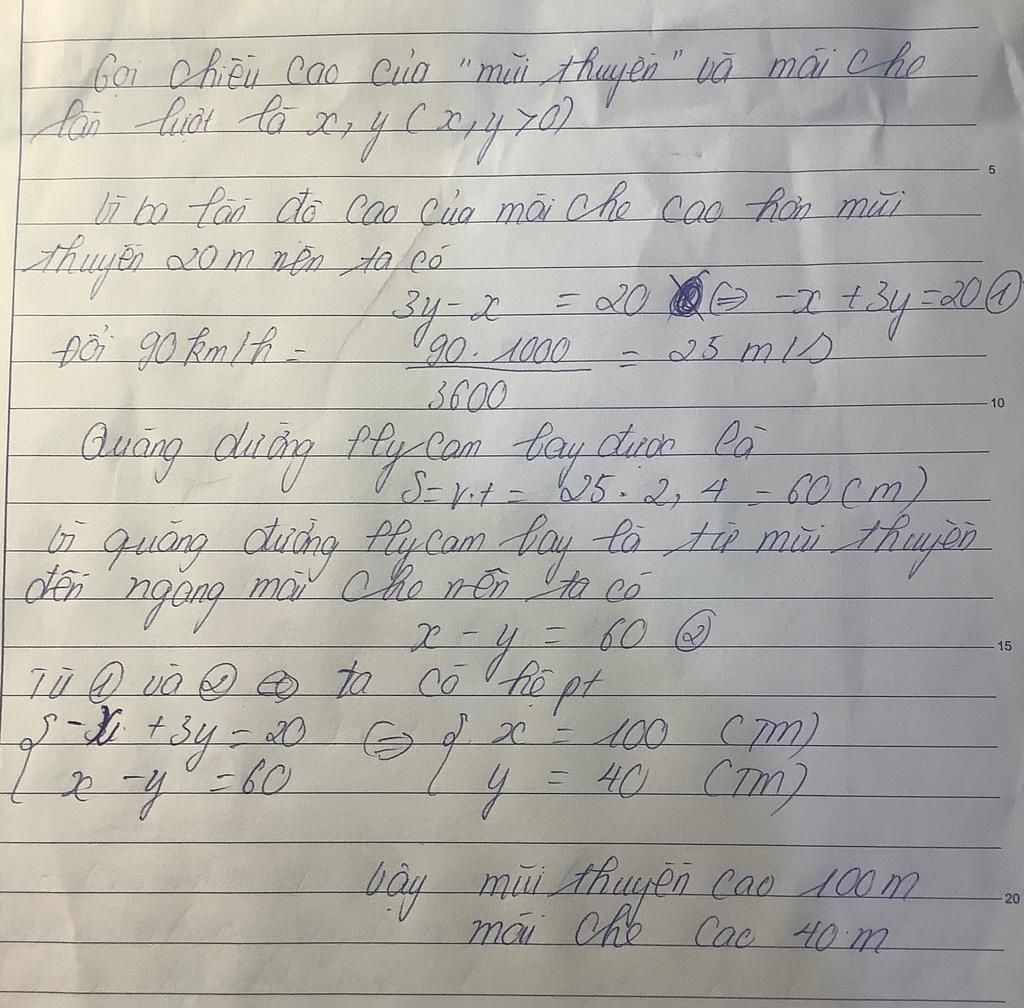 Gọi chiều cao của "mũi thuyền" và mái che
lần lượt là x, y (x, y > 0)
5
Vì ba lần độ cao của mái che cao hơn mũi
thuyền 20 m nên ta có
3y - x = 20 ⇔ -x + 3y = 20 ①
Đổi 90 km/h = 90 . 1000 / 3600 = 25 m/s
10
Quãng đường flycam bay được là
S = v.t = 25 . 2,4 = 60 (m)
Vì quãng đường flycam bay là từ mũi thuyền
đến ngang mái che nên ta có
x - y = 60 ②
15
Từ ① và ② ta có hệ pt
{ -x + 3y = 20 ⇔ { x = 100 (TM)
x - y = 60 y = 40 (TM)
Vậy mũi thuyền cao 100 m
20
mái che cao 40 m